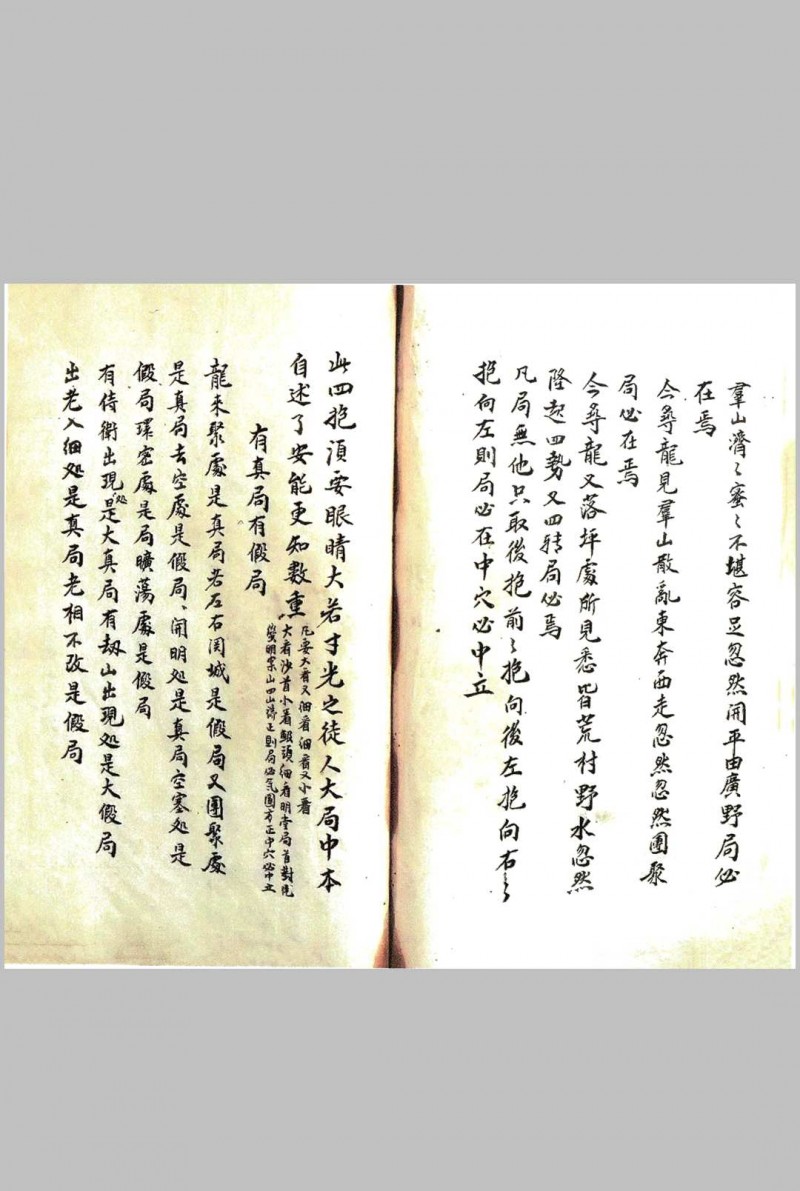 羣山濟〻蜜〻不堪容足忽然開平由廣野局必
在焉
今尋龍見羣山散亂東奔西走忽然忽然團聚
局必在焉
今尋龍又落坪處所見悉皆荒村野水忽然
隆起四勢又四轉局必焉
凡局無他只取後抱前〻抱向後左抱向右〻
抱向左則局必在中穴必中立
此四抱須要眼晴大若寸光之徒人大局中本
自述了安能更知數重
凡要大看又細看細看又小看
大看沙首小看頭細看明堂局首對先
明山四山正則局必氣團方正中穴必中立
有真局有假局
龍來聚處是真局若左右闭城是假局又團聚處
是真局去空處是假局、開明処是真局空塞処是
假局環密處是局曠蕩處是假局
有侍衛出現処是大真局有刼山出現処是大假局
出老入细処是真局老相不改是假局